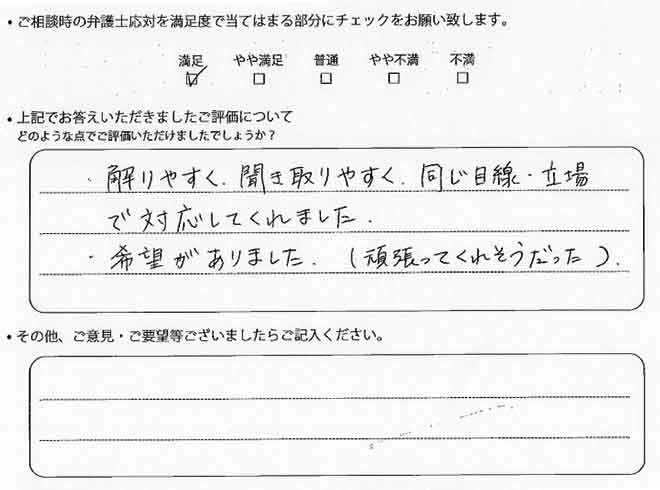 ・ご相談時の弁護士応対を満足度で当てはまる部分にチェックをお願い致します。
満足 やや満足 普通 やや不満 不満
☑ □ □ □ □
・上記でお答えいただきましたご評価について
どのような点でご評価いただけましたでしょうか?
・解りやすく、聞き取りやすく、同じ目線・立場
で対応してくれました.
・希望がありました. (頑張ってくれそうだった).
・その他、ご意見・ご要望等ございましたらご記入ください。